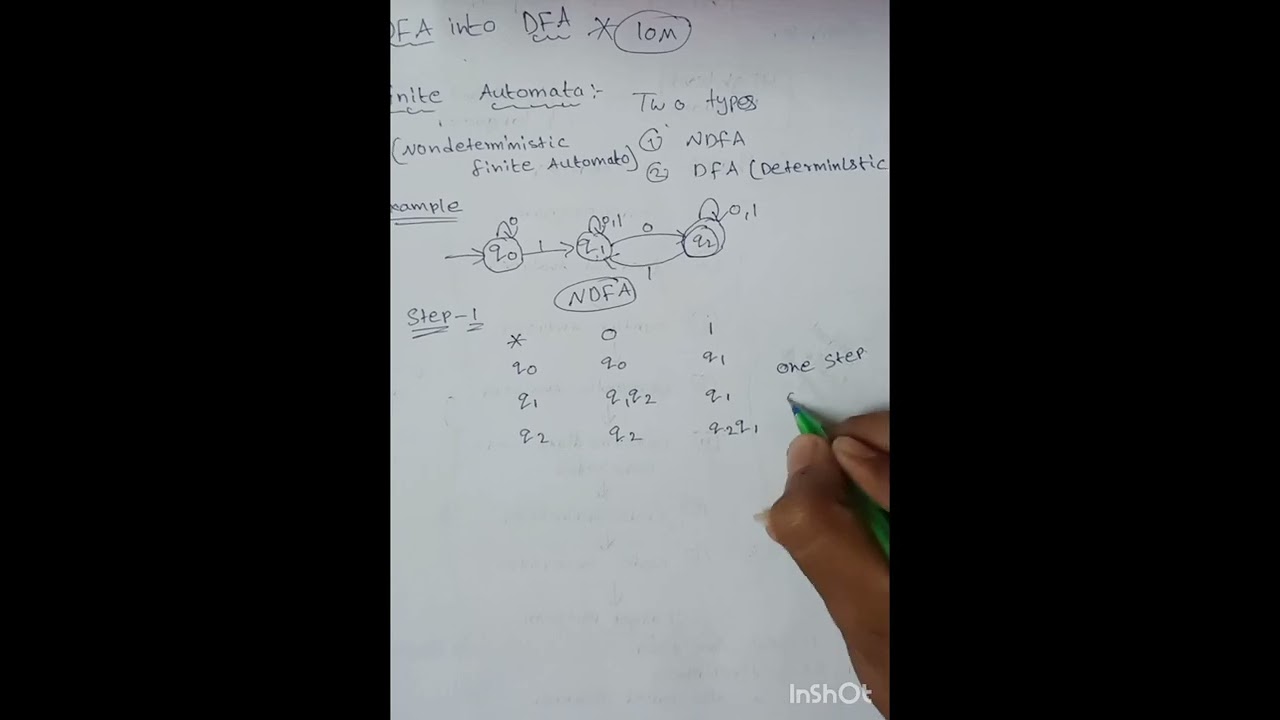 DFA into DFA * 10M
inite Automata:- Two types
(Nondeterministic ① NDFA
finite Automato) ② DFA (Deterministic
xample
0 0,1 0 0,1
q0 1 q1 q2
1
NDFA
Step-1
* 0 1
q0 q0 q1 one step
q1 q1q2 q1
q2 q2 q2q1
InShOt